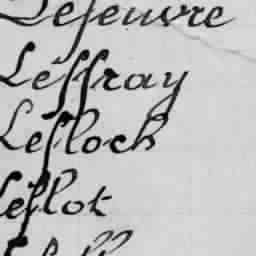 Lefeuvre
Léffray
Léfloch
Léflot